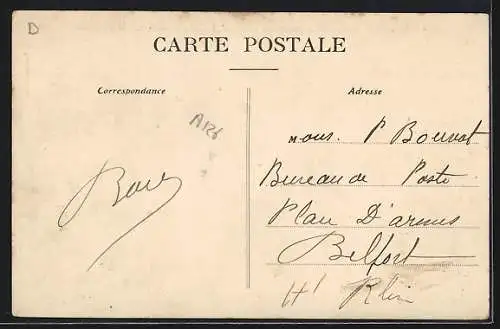 D
CARTE POSTALE
Correspondance
Adresse
Mous. P Bouvat
Bureau de Poste
Place D'armes
Belfort
Ht Rhin